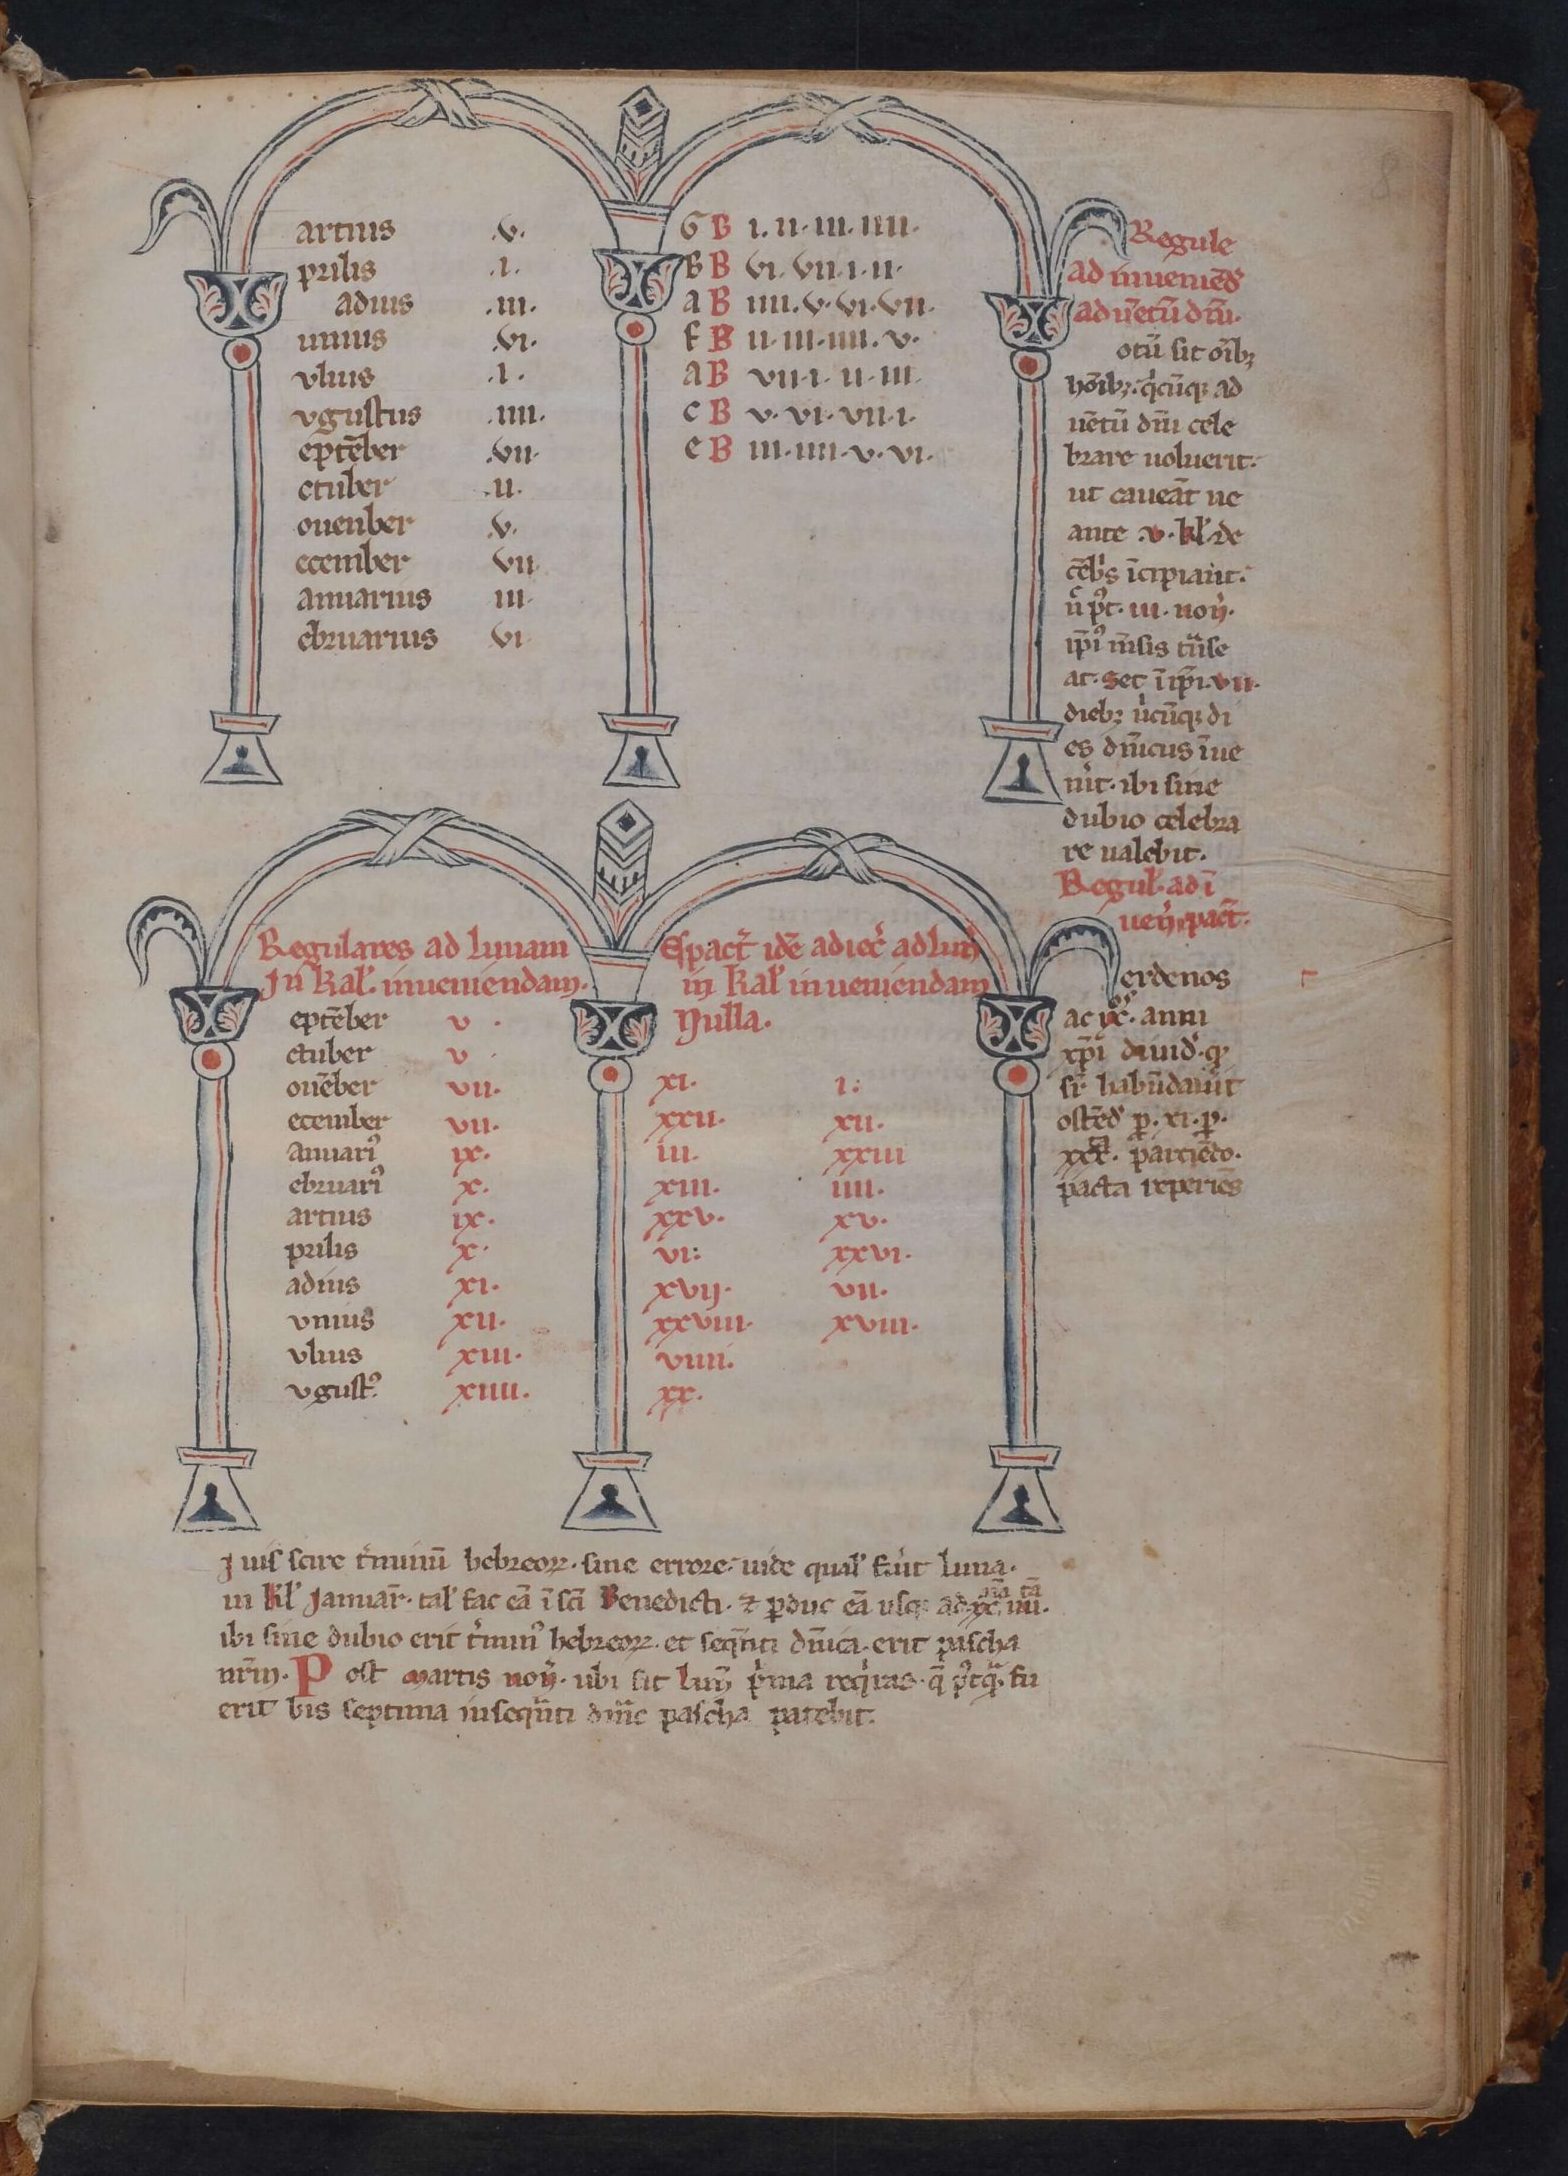 8
artius .v.
prilis .i.
adius .iii.
unius .vi.
vlius .i.
vgustus .iiii.
eptēber .vii.
ctuber .ii.
ouenber .v.
ecember vii.
anuarius iii.
ebruarius vi.
G B i. ii. iii. iiii.
B B vi. vii. i. ii.
a B iiii. v. vi. vii.
f B ii. iii. iiii. v.
a B vii. i. ii. iii.
c B v. vi. vii. i.
e B iii. iiii. v. vi.
Regule
ad inueniēd
aduētū dn̄i.
otū sit oīb;
hoīb;. q̄cūq; ad
uētū dn̄i cele
brare uoluerit.
ut caueāt ne
ante .v. kl̄. de
cēb̄s īcipiant.
ū p̄t. iii. non̄.
ip̄i m̄sis t̄nse
at. Set īip̄i. vii.
dieb; ūcūq; di
es dn̄icus īue
nit. ibi sine
dubio celebra
re ualebit.
Regul̄. ad ī
uen̄. pact̄.
erdenos
ac annī
xp̄i diuid̄. q̄
sr̄ habūdauīt
ostēd̄ p̄. xi. p̄.
xxx. partiēdo.
pacta reperiēs
Regulares ad lunam
In kal̄. inueniendam.
eptēber v .
ctuber v .
ouēber vii.
ecember vii.
anuari⁹ ix.
ebruari⁹ x.
artius ix.
prilis x.
adius xi.
vnius xii.
vlius xiii.
vgust⁹. xiiii.
Epact̄ idē adiec̄ ad lun̄
in kal̄ inueniendam
Nulla.
xi. i:
xxii. xii.
iii. xxiii
xiiii. iiii.
xxv. xv.
vi: xxvi.
xvii. vii.
xxviii. xviii.
viiii.
xx.
I uis scire t̄minū hebreoꝝ. sine errore. uide qual̄ fuīt luna.
in kl̄ Januar̄. tal̄ fac eā ī sc̄i Benedicti. ⁊ p̄duc eā usq; ad
ibi sine dubio erit t̄min⁹ hebreoꝝ. et seq̄nti dn̄ica. erit pascha
nr̄m. Post martis non̄. ubi sit lun̄ p̄ma req̄ras. q̄ p⁹tq̄. fu
erit bis septima inseqūti dn̄ic pascha patebit.